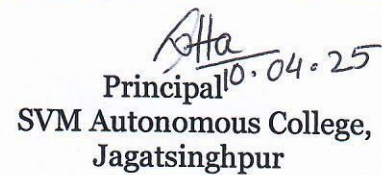 10.04.25
Principal
SVM Autonomous College,
Jagatsinghpur